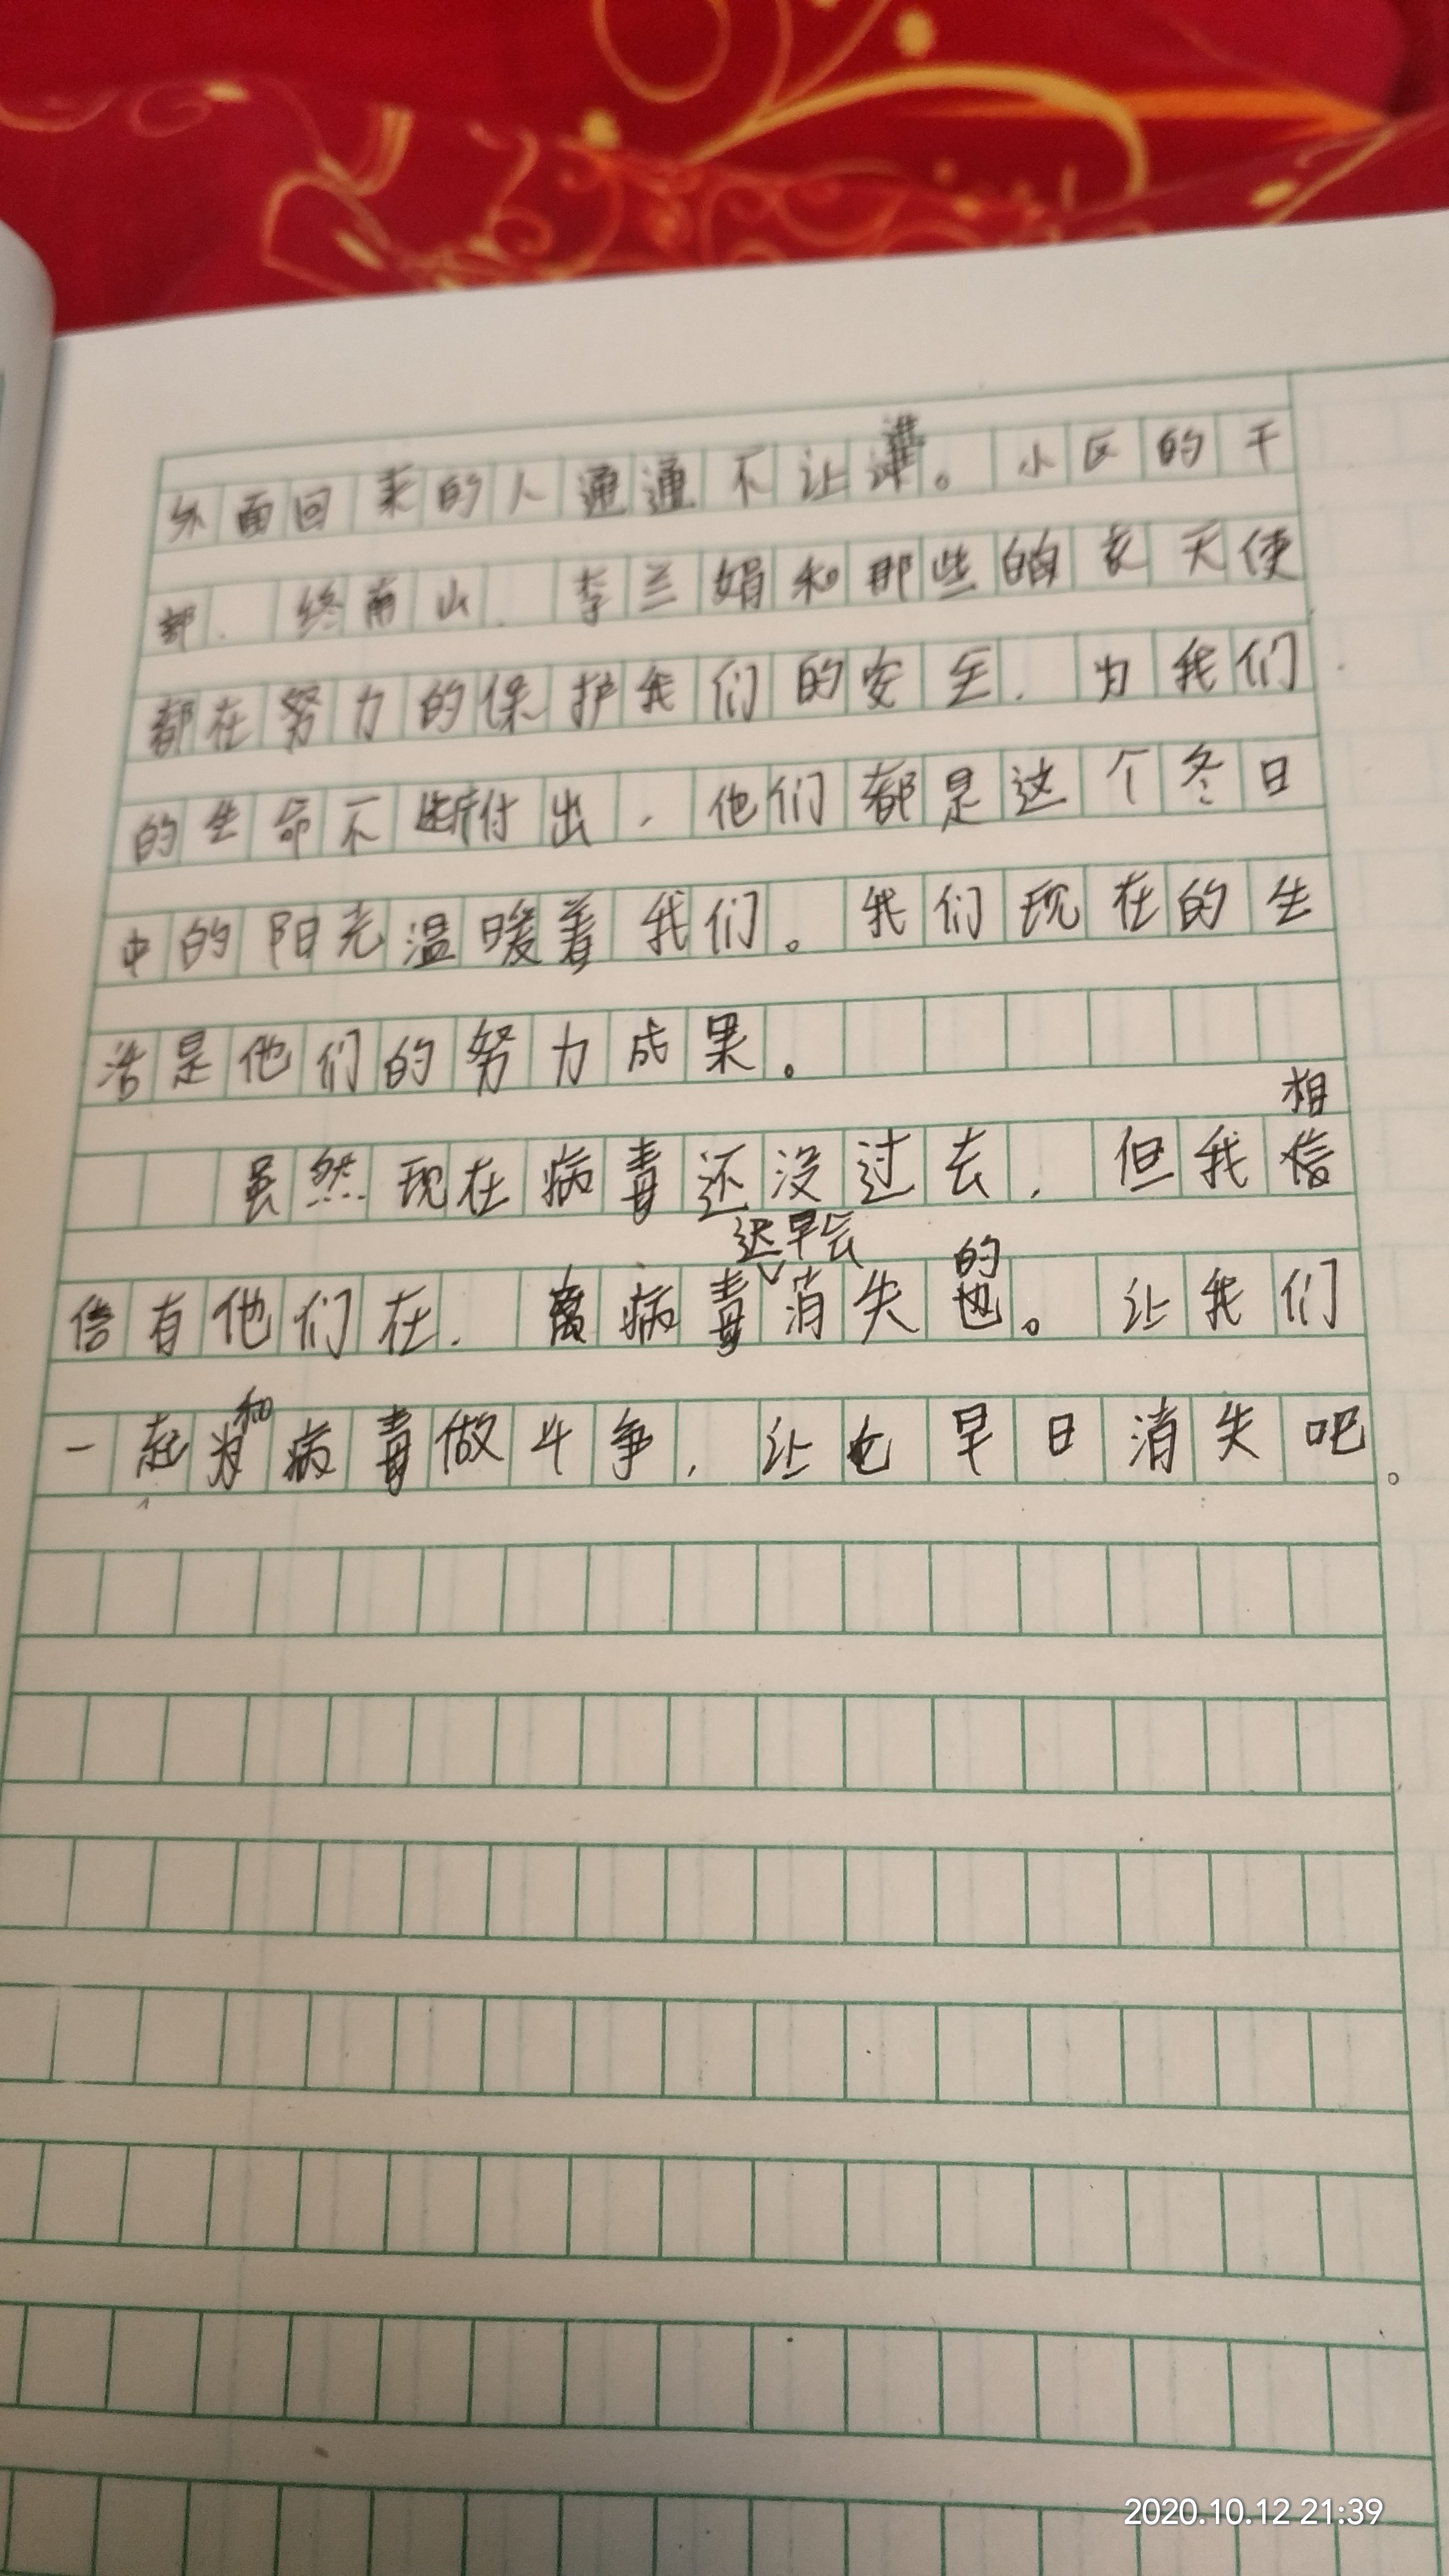 外面回来的人通通不让进。小区的干
部，终南山，李兰娟和那些的白衣天使
都在努力的保护我们的安全，为我们
的生命不断付出，他们都是这个冬日
中的阳光温暖着我们。我们现在的生
活是他们的努力成果。
相
虽然现在病毒还没过去，但我信
迟早会 的
信有他们在，离病毒消失也。让我们
和
一起为病毒做斗争，让它早日消失吧。
2020.10.12 21:39